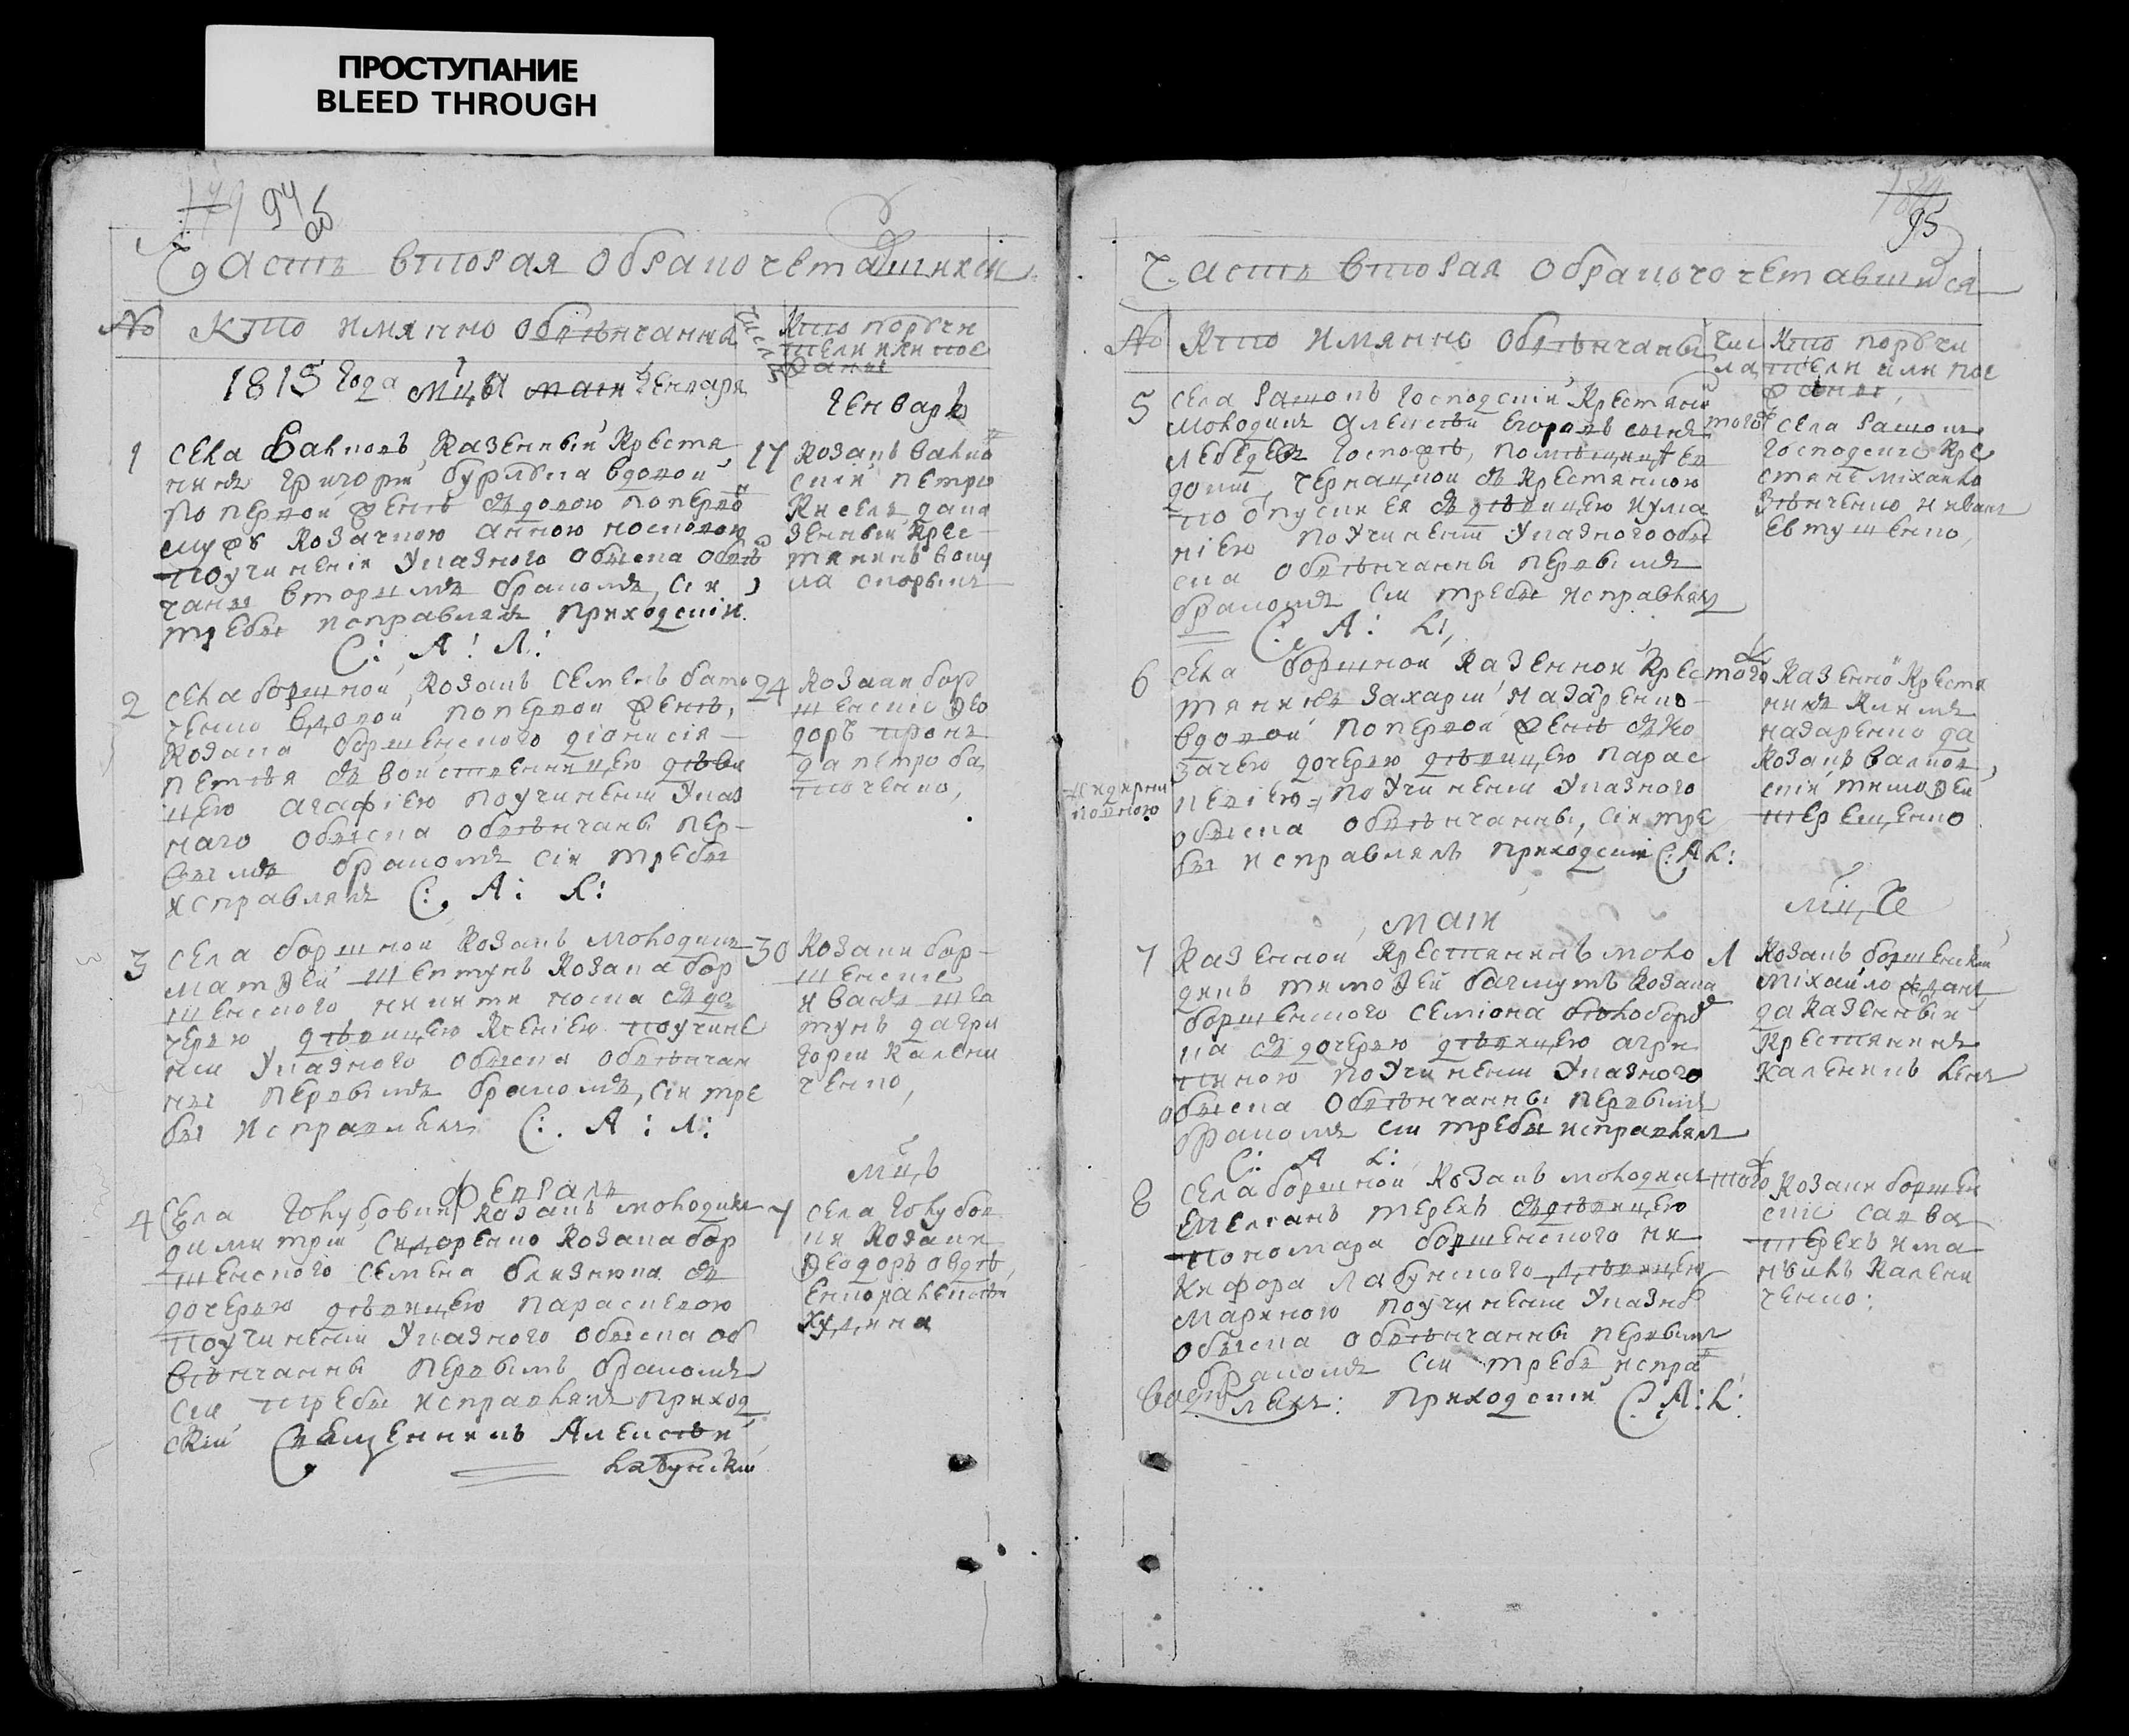 ПРОСТУПАНИЕ
BLEED THROUGH
94
об
Часть вторая о бракочетавшихся
№ Кто имянно обвѣнчанна
Числа
Кто поручи
тели или поѣ
жане
1815 года мц҃ъ генваря
генварь
1 села Валковъ, казенный крестя
нинъ Григорій бурлѣка вдовой
по первой женѣ здовою по первом
мужѣ козачкою Анною носковою
по учиненіи указного обыска обвѣ
чаны вторымъ бракомъ, сіи
требы исправлялъ приходскій.
С: А: Л:
17 козакъ валко
скій петро
киселъ, дака
зенный крес
тянинъ вому
ла скорыкъ
2 села боршной, козакъ семенъ бато
ченко вдовой по первой женѣ,
козака боршенского діонисія
петѣя звоиственницею дѣви
цею агафіею по учиненіи указ
наго обыска обвѣнчаны пер
вымъ бракомъ сіи требы
исправлялъ С: А: Л:
24 козаки бор
шенскіе Ѳео
доръ пронь
да петро ба
точенко,
3 села боршной козакъ молодикъ
матѳей шептунъ козака бор
шенского никити носка здо
черью дѣвицею ксеніею по учине
ніи указного обыска обвѣнчан
ны первымъ бракомъ, сіи тре
бы исправлялъ С: А: Л:
30 козаки бор
шенские
иванъ шеп
тунъ дагри
горій калени
ченко,
февраль
мц҃ъ
4 села голубовки козакъ молодикъ
димитрій сидоренко козака бор
шенского семена близнюка з
дочерью дѣвицею параскевою
по учиненіи указного обыска об
вѣнчанны первымъ бракомъ
сіи требы исправлялъ приход
скій Священникъ Алексѣй
Лабунскій
7 села голубов
ки козаки
Ѳеодоръ овдѣ
енко
худина
95
Часть вторая о бракочетавшихся
№ Кто имянно обвѣнчаны
Чис
ла
Кто поручи
тели или поѣ
жане,
5 села рашокъ господскій крестянинъ
молодикъ алексѣй егоровъ сынъ
лебедевъ господѣ, помѣщицы ев
докіи черкацкой зкрестянкою
по отпуски ея здѣвицею кула
ніею по учиненіи указного обы
ска обвѣнчанны первымъ
бракомъ сіи требы исправлялъ
С: А: Л:
того
села рашокъ
господскіе кре
стяне міхайло
зѣнченко иванъ
евтушенко,
6 села боршной казенной крес
тянинъ захарій назаренко
вдовой по первой женѣ зко
зачею дочерью дѣвицею парас
кевіею по учиненіи указного
обыска обвѣнчанны, сіи тре
бы исправлялъ приходскій С: А Л:
того казенно крестя
нинъ климъ
назаренко да
козакъ валков
скій тимоѳей
терещенко
маіи
мц҃ъ
7 казенной крестянинъ моло
дикъ тимоѳей бачмутъ козака
боршенского семіона бѣлоборо
ка здочерью дѣвицею агри
пиною по учиненіи указного
обыска обвѣнчанны первымъ
бракомъ сіи требы исправлялъ
С: А Л:
козакъ боршенскій
міхайло
да казенный
крестянинъ
каленикъ
8 села боршной козакъ молодикъ
емеліанъ терехъ здѣвицею
пономара боршенского ни
кифора лабунского дѣвицею
мариною по учиненіи указно
обыска обвѣнчанны первымъ
бракомъ сіи требы испра
влялъ: приходскій С: А: Л:
того козаки боршен
скіе савва
терехъ има
нѣилъ калени
ченко: